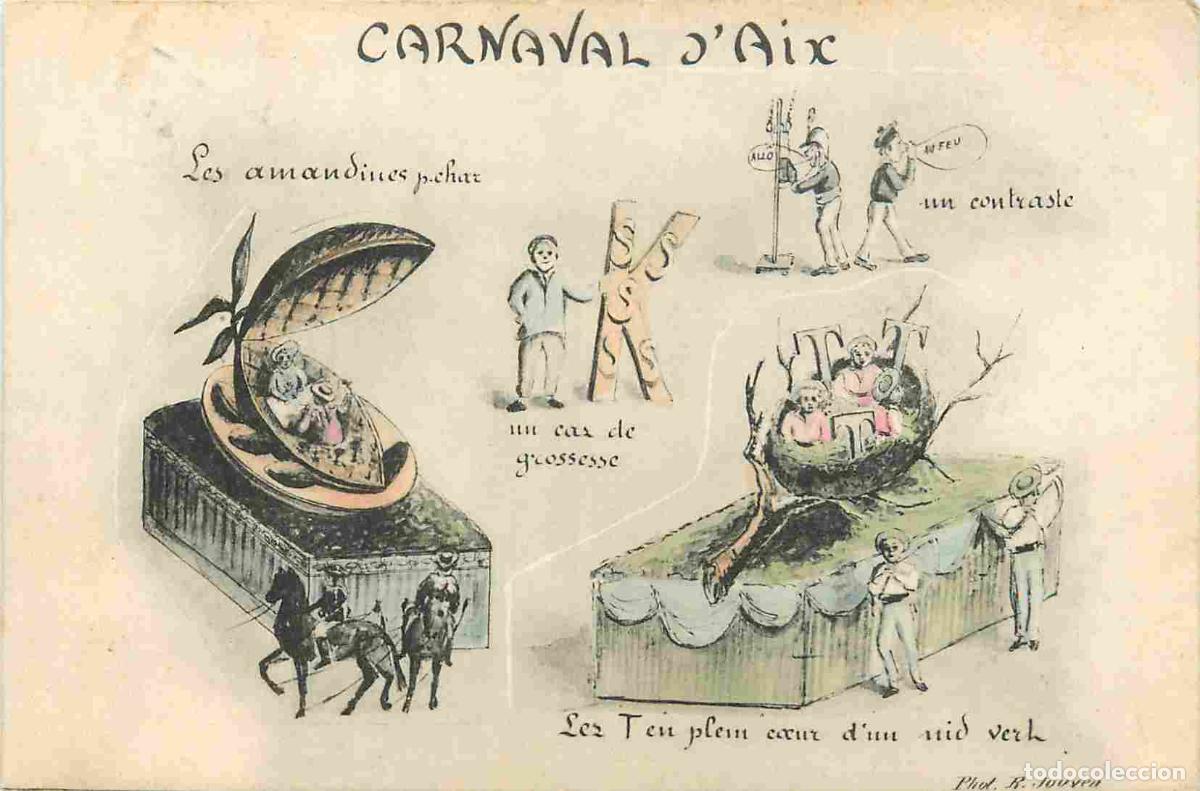 CARNAVAL D'Aix
Les amandines p.char
ALLÔ
AU FEU
un contraste
S
S S
S
S S
K
un cas de
grossesse
T T
T
Les T en plein cœur d'un nid vert
Phot. R. Jouven
todocoleccion